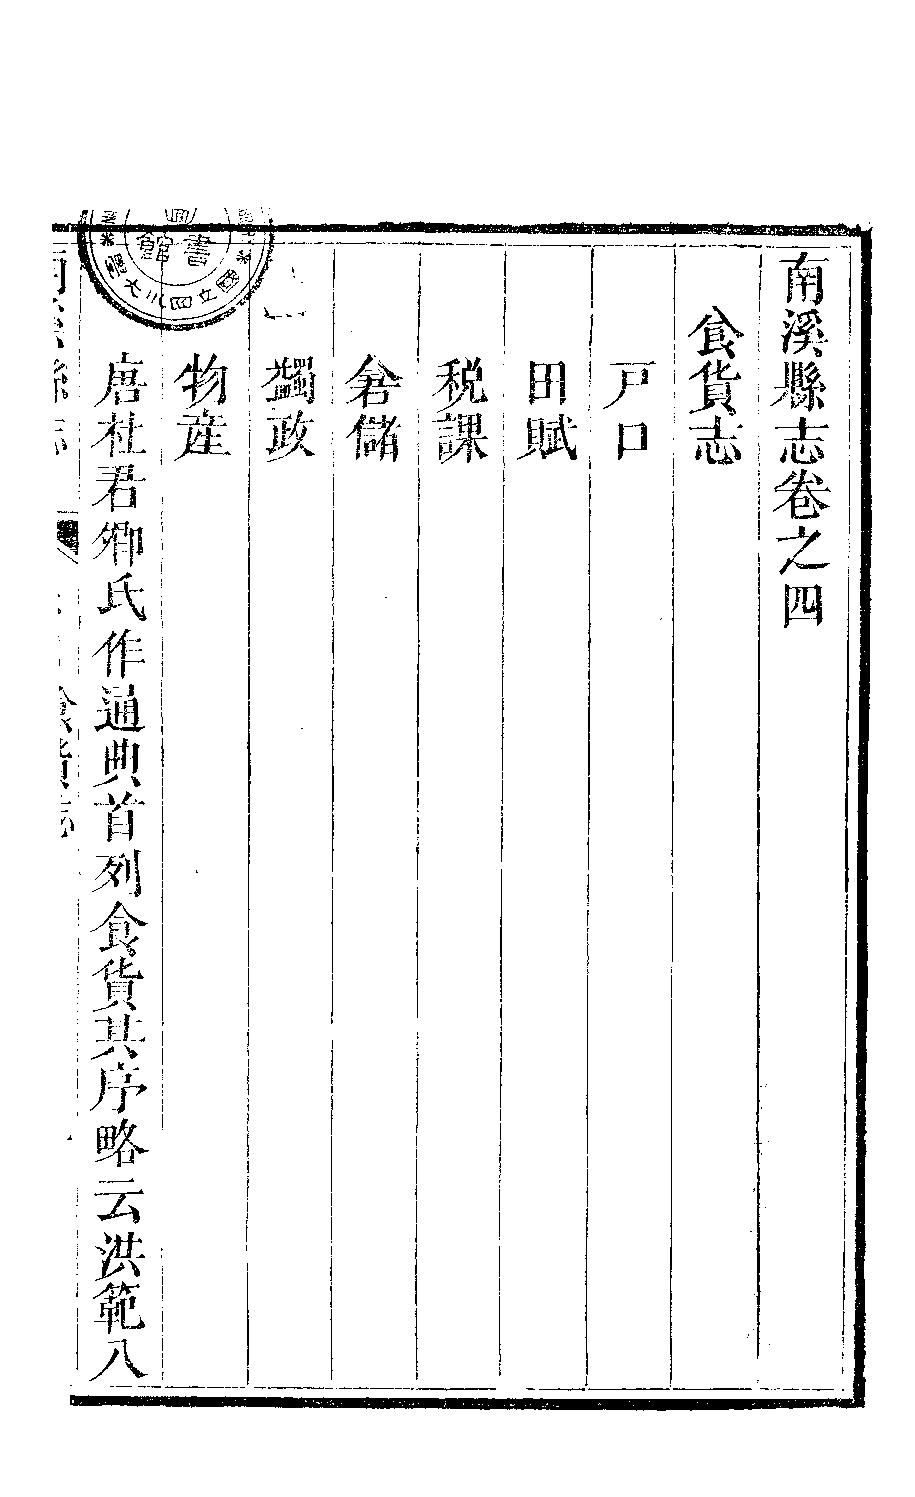 南溪縣志卷之四
食貨志
戸口
田賦
税課
倉儲
蠲政
物産
唐杜君卿氏作通典首列食貨其序略云洪範八
食貨志
國立四川大學
書館